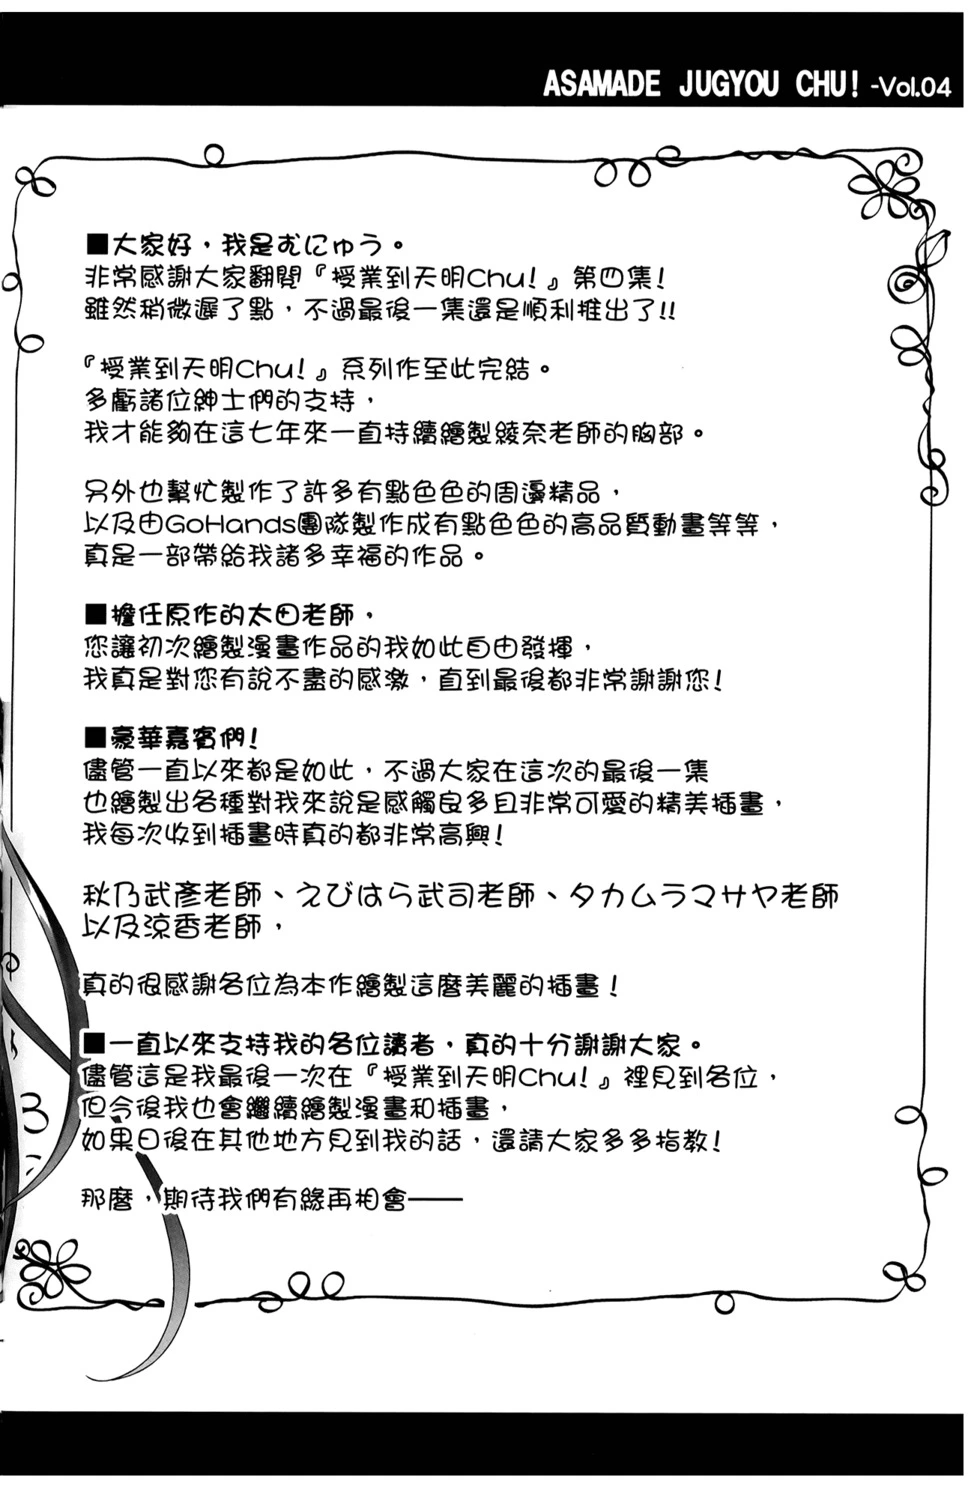 ASAMADE JUGYOU CHU! -Vol.04
■大家好，我是むにゅう。
非常感謝大家翻閱『授業到天明Chu!』第四集!
雖然稍微遲了點，不過最後一集還是順利推出了!!
『授業到天明Chu!』系列作至此完結。
多虧諸位紳士們的支持，
我才能夠在這七年來一直持續繪製綾奈老師的胸部。
另外也幫忙製作了許多有點色色的周邊精品，
以及由GoHands團隊製作成有點色色的高品質動畫等等，
真是一部帶給我諸多幸福的作品。
■擔任原作的太田老師，
您讓初次繪製漫畫作品的我如此自由發揮，
我真是對您有說不盡的感激，直到最後都非常謝謝您!
■豪華嘉賓們!
儘管一直以來都是如此，不過大家在這次的最後一集
也繪製出各種對我來說是感觸良多且非常可愛的精美插畫，
我每次收到插畫時真的都非常高興!
秋乃武彥老師、えびはら武司老師、タカムラマサヤ老師
以及涼香老師，
真的很感謝各位為本作繪製這麼美麗的插畫!
■一直以來支持我的各位讀者，真的十分謝謝大家。
儘管這是我最後一次在『授業到天明Chu!』裡見到各位，
但今後我也會繼續繪製漫畫和插畫，
如果日後在其他地方見到我的話，還請大家多多指教!
那麼，期待我們有緣再相會——